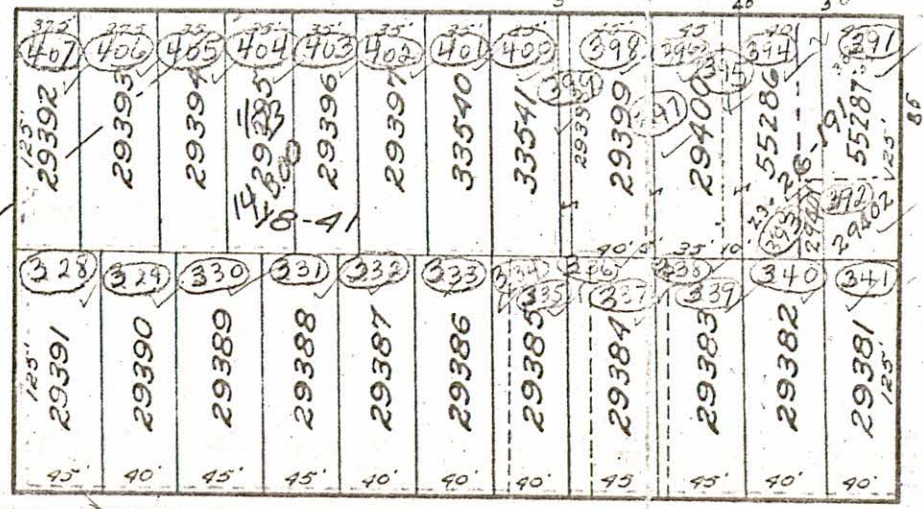 40 50
37.5' 35' 35' 35' 35' 35' 35' 35' 45' 45' 40'
407 406 405 404 403 402 401 400 399 398 397 396 395 394 391
125' 29392 29393 29394 29396 29397 33540 33541 29399 29400 55286 55287 125' 86
14 B.00
18-41
393 392 29402
40' 5' 35' 10'
328 329 330 331 332 333 334 335 336 337 338 339 340 341
125' 29391 29390 29389 29388 29387 29386 29385 29384 29383 29382 29381 125'
45' 40' 45' 45' 40' 40' 40' 45 40' 40' 40'